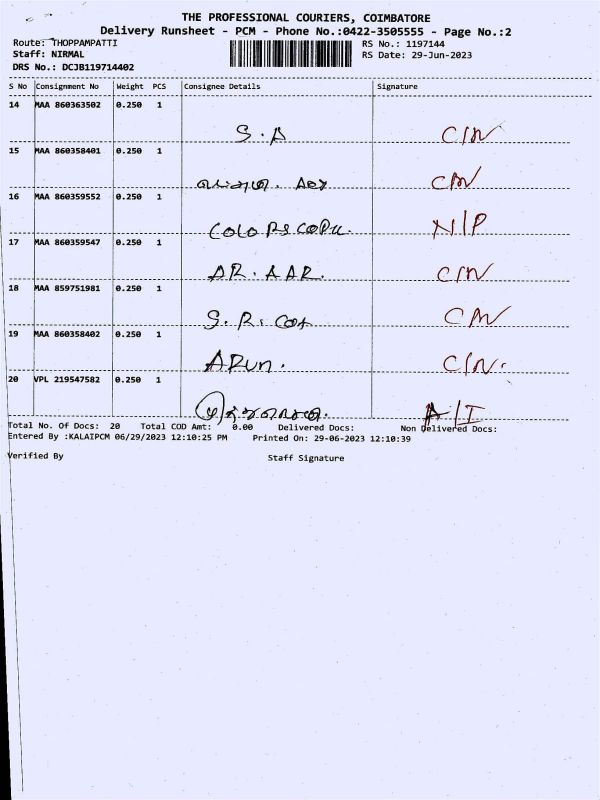 THE PROFESSIONAL COURIERS, COIMBATORE
Delivery Runsheet - PCM - Phone No.:0422-3505555 - Page No.:2
Route: THOPPAMPATTI RS No.: 1197144
Staff: NIRMAL RS Date: 29-Jun-2023
DRS No.: DCJB119714402
S No Consignment No Weight PCS Consignee Details Signature
14 MAA 860363502 0.250 1
S.A C/N
15 MAA 860358401 0.250 1
C/N
16 MAA 860359552 0.250 1
N/P
17 MAA 860359547 0.250 1
AR. AAR. C/N
18 MAA 859751981 0.250 1
S. R. C/N
19 MAA 860358402 0.250 1
ARun. C/N.
20 VPL 219547582 0.250 1
A/I
Total No. Of Docs: 20 Total COD Amt: 0.00 Delivered Docs: Non Delivered Docs:
Entered By :KALAIPCM 06/29/2023 12:10:25 PM Printed On: 29-06-2023 12:10:39
Verified By Staff Signature